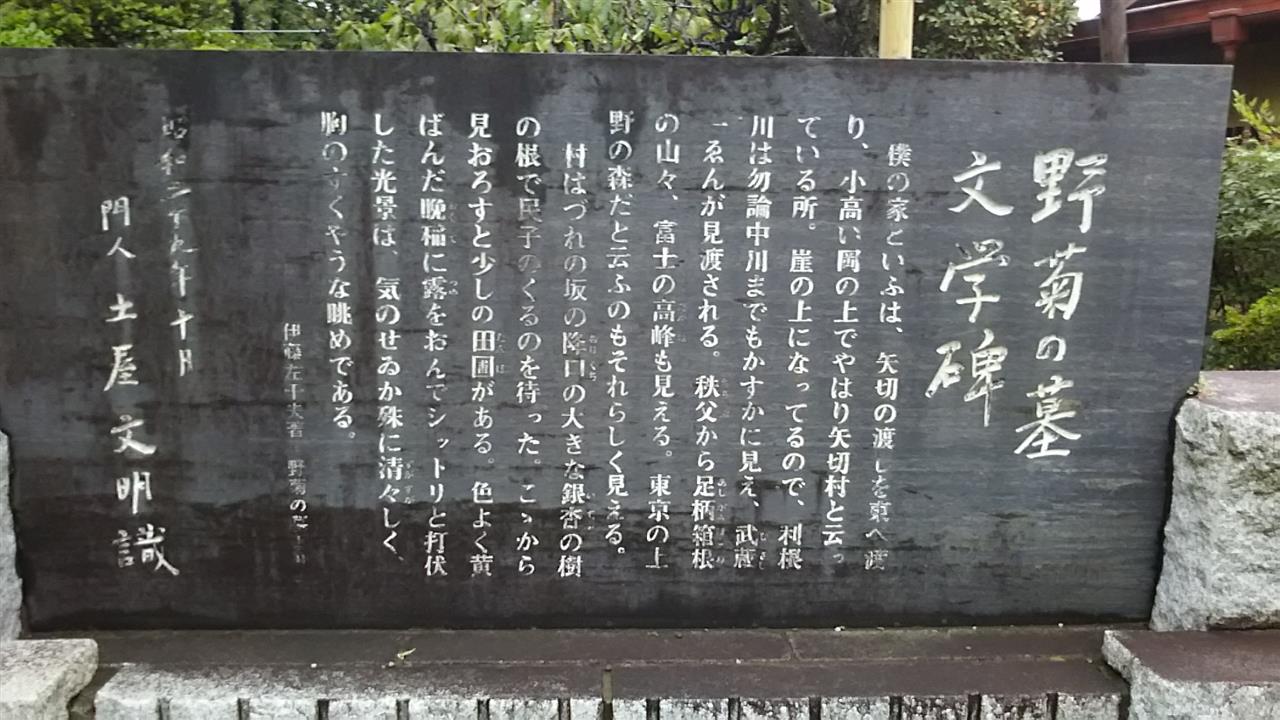 野菊の墓
文学碑
僕の家といふは、矢切の渡しを東へ渡
り、小高い岡の上でやはり矢切村と云っ
ている所。崖の上になってるので、利根
川は勿論中川までもかすかに見え、武蔵
一ゑんが見渡される。秩父から足柄箱根
の山々、富士の高峰も見える。東京の上
野の森だと云ふのもそれらしく見える。
村はづれの坂の降口の大きな銀杏の樹
の根で民子のくるのを待った。こゝから
見おろすと少しの田圃がある。色よく黄
ばんだ晩稲に露をおんでシットリと打伏
した光景は、気のせゐか殊に清々しく、
胸のすくやうな眺めである。
伊藤左千夫著 野菊の
昭和三十九年十月
門人 土屋文明識